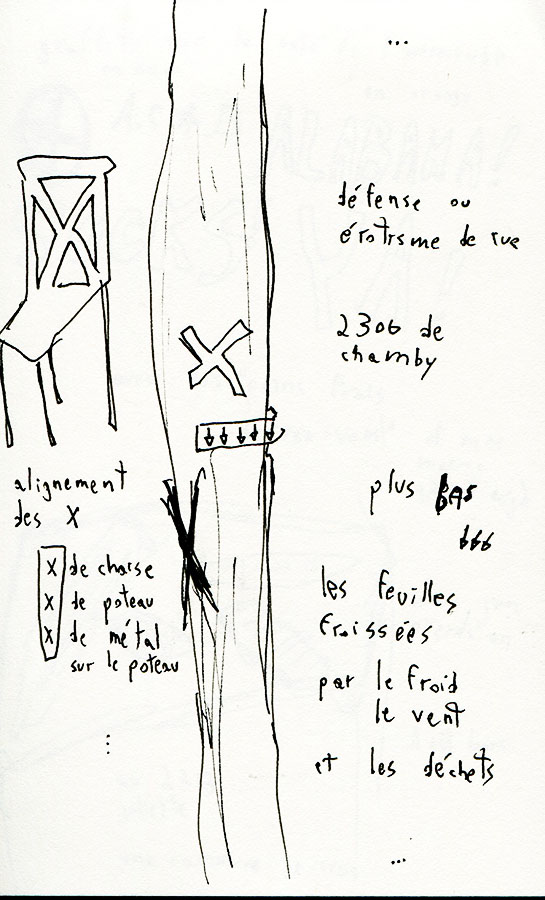 ...
défense ou
érotisme de rue
2306 de
chamby
alignement
des X
X de chaise
X de poteau
X de métal
sur le poteau
...
plus BAS
les feuilles
froissées
par le froid
le vent
et les déchets
...